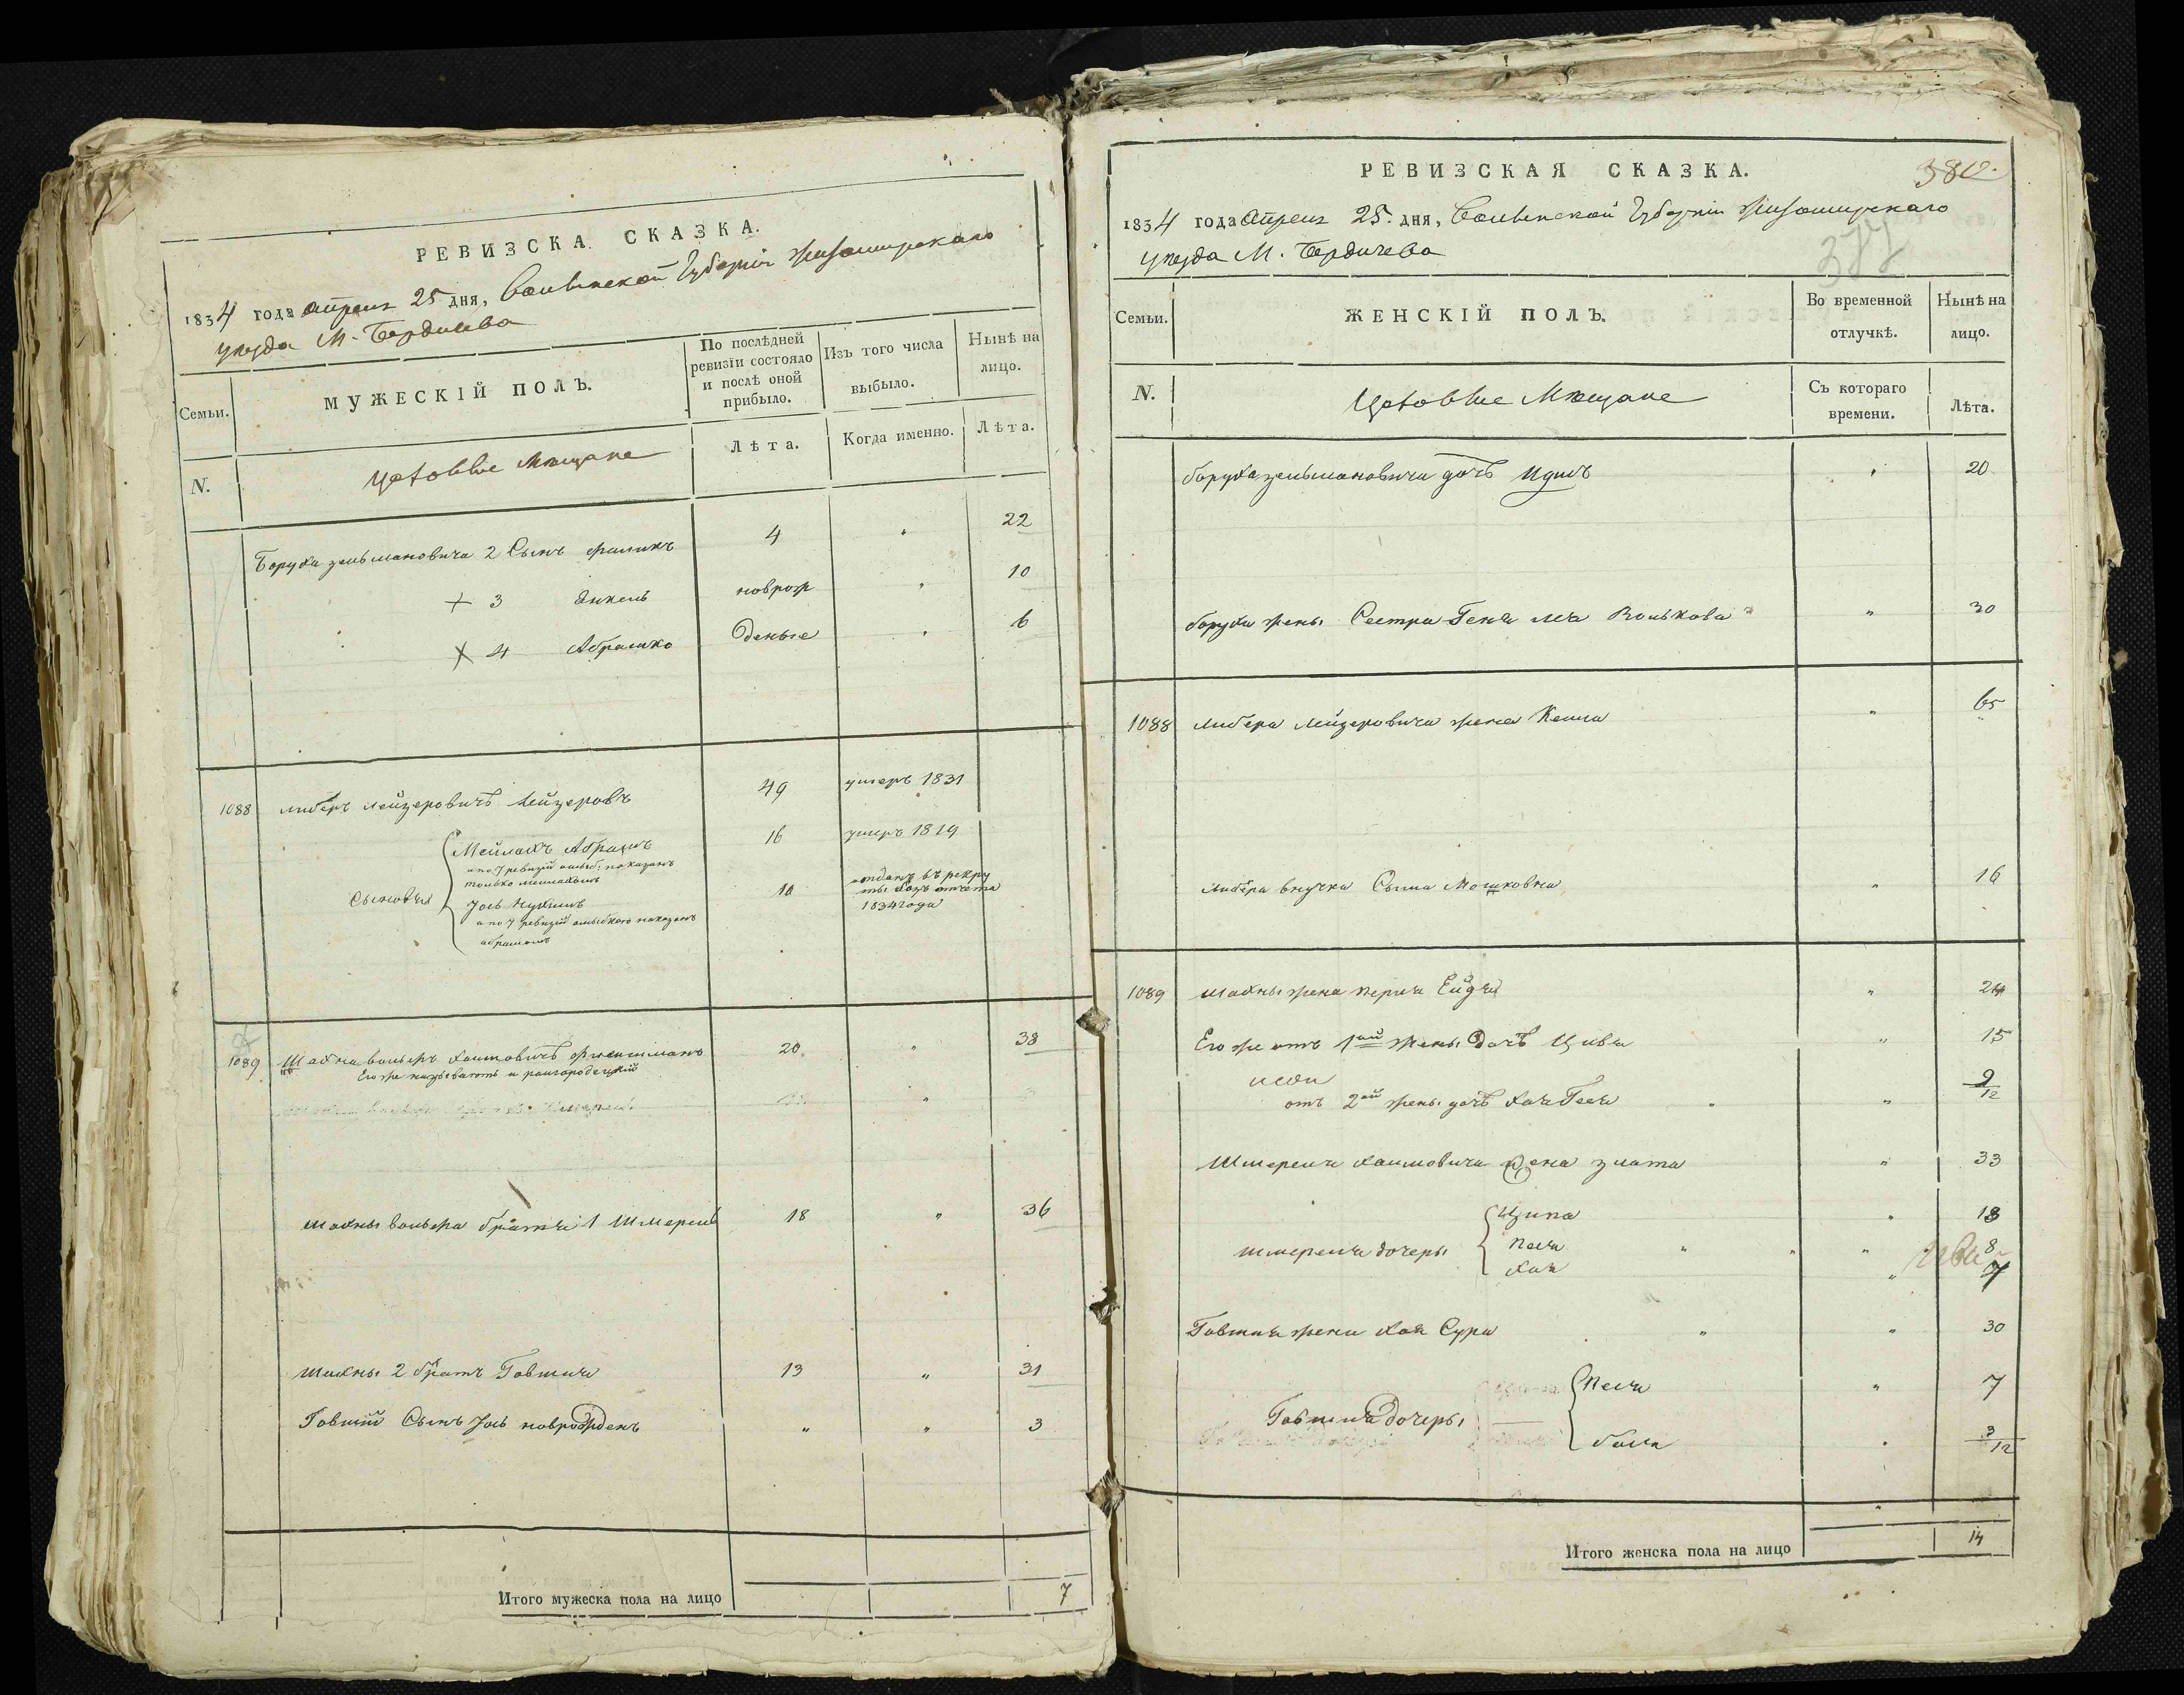 РЕВИЗСКА СКАЗКА.
1834 года Апреля 25 дня, Волынской Губерніи Житомирскаго
уезда М. Бердичева
Семьи.
МУЖЕСКІЙ ПОЛЪ.
По послѣдней
ревизіи состояло
и послѣ оной
прибыло.
Изъ того числа
выбыло.
Нынѣ на
лицо.
N.
Мѣщане
Лѣта.
Когда именно.
Лѣта.
Боруха Зельмановича 2 Сынъ Фаликъ 4 " 22
+ 3 Янкель новрож " 10
+ 4 Абрамко деные " 6
1088 Либеръ Лейзеровичъ Лейзеровъ 49 умеръ 1831
Сыновья
Мейлахъ Абрамъ 16 умеръ 1819
а по 7 ревизіи ошиб: показанъ
только Мейлахомъ
Іось Нухимъ 10 отданъ въ рекру
ты безъ отчета
1834 года
а по 7 ревизіи ошибкою показанъ
абрамомъ
1089 Шахна вольфъ Хаимовичъ 20 " 38
Его же называютъ и
Шахны вольфа братья 1 Шмерель 18 " 36
Шахны 2 братъ Говшия 13 " 31
Говшіи Сынъ Іось новрожденъ " " 3
Итого мужеска пола на лицо 7
РЕВИЗСКАЯ СКАЗКА.
380.
377
1834 года Апреля 25 дня, Волынской Губерніи Житомирскаго
уезда М. Бердичева
Семьи.
ЖЕНСКІЙ ПОЛЪ.
Во временной
отлучкѣ.
Нынѣ на
лицо.
N.
Мѣщане
Съ котораго
времени.
Лѣта.
Боруха Зельмановича дочь Идись " 20
Боруха жены Сестра Геня Лея Волькова " 30
1088 Либера Лейзеровича жена Кейла " 65
Либера внучка Сима Мошковна " 16
1089 Шахны жена Перля Ейдля " 24
Его же отъ 1ой жены Дочь Цивья " 15
отъ 2ой жены дочь Хая Геся " 9/12
Шмереля Хаимовича Жена Злата " 33
Шмереля дочеры
Ципа " 18
Песя " 8
Хая " 7
Говшия жена Хая Сура " 30
Говшия Дочеры
Песя " 7
бася " 3/12
Итого женска пола на лицо 14